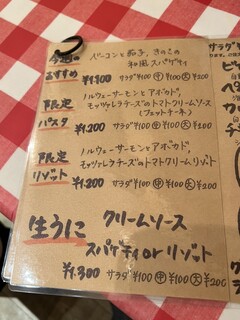 今週の
おすすめ
ベーコンと茄子、きのこの
和風スパゲティ
¥1.100 サラダ¥100 中¥100 大¥200
限定
パスタ
ノルウェーサーモンとアボカド、
モッツァレラチーズのトマトクリームソース
(フェットチーネ)
¥1.200 サラダ¥100 中¥100 大¥200
限定
リゾット
ノルウェーサーモンとアボカド、
モッツァレラチーズのトマトクリームリゾット
¥1.200 サラダ¥100 中¥100 大¥200
生うに クリームソース
スパゲティorリゾット
¥1.300 サラダ¥100 中¥100 大¥200